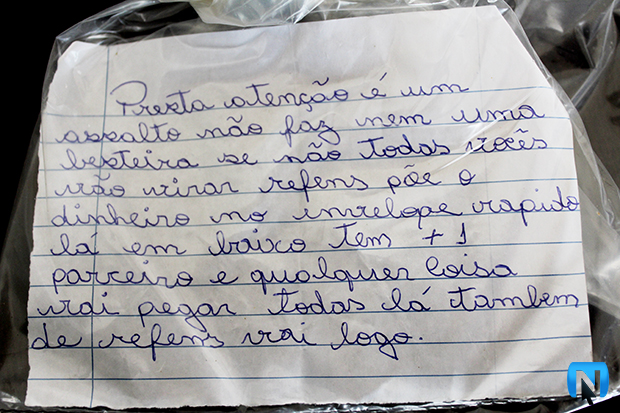 Presta atenção é um
assalto não faz nem uma
besteira se não todas vocês
vão virar refens põe o
dinheiro no invelope rapido
lá em baixo tem + 1
parceiro e qualquer coisa
vai pegar todas lá tambem
de refens vai logo.
N